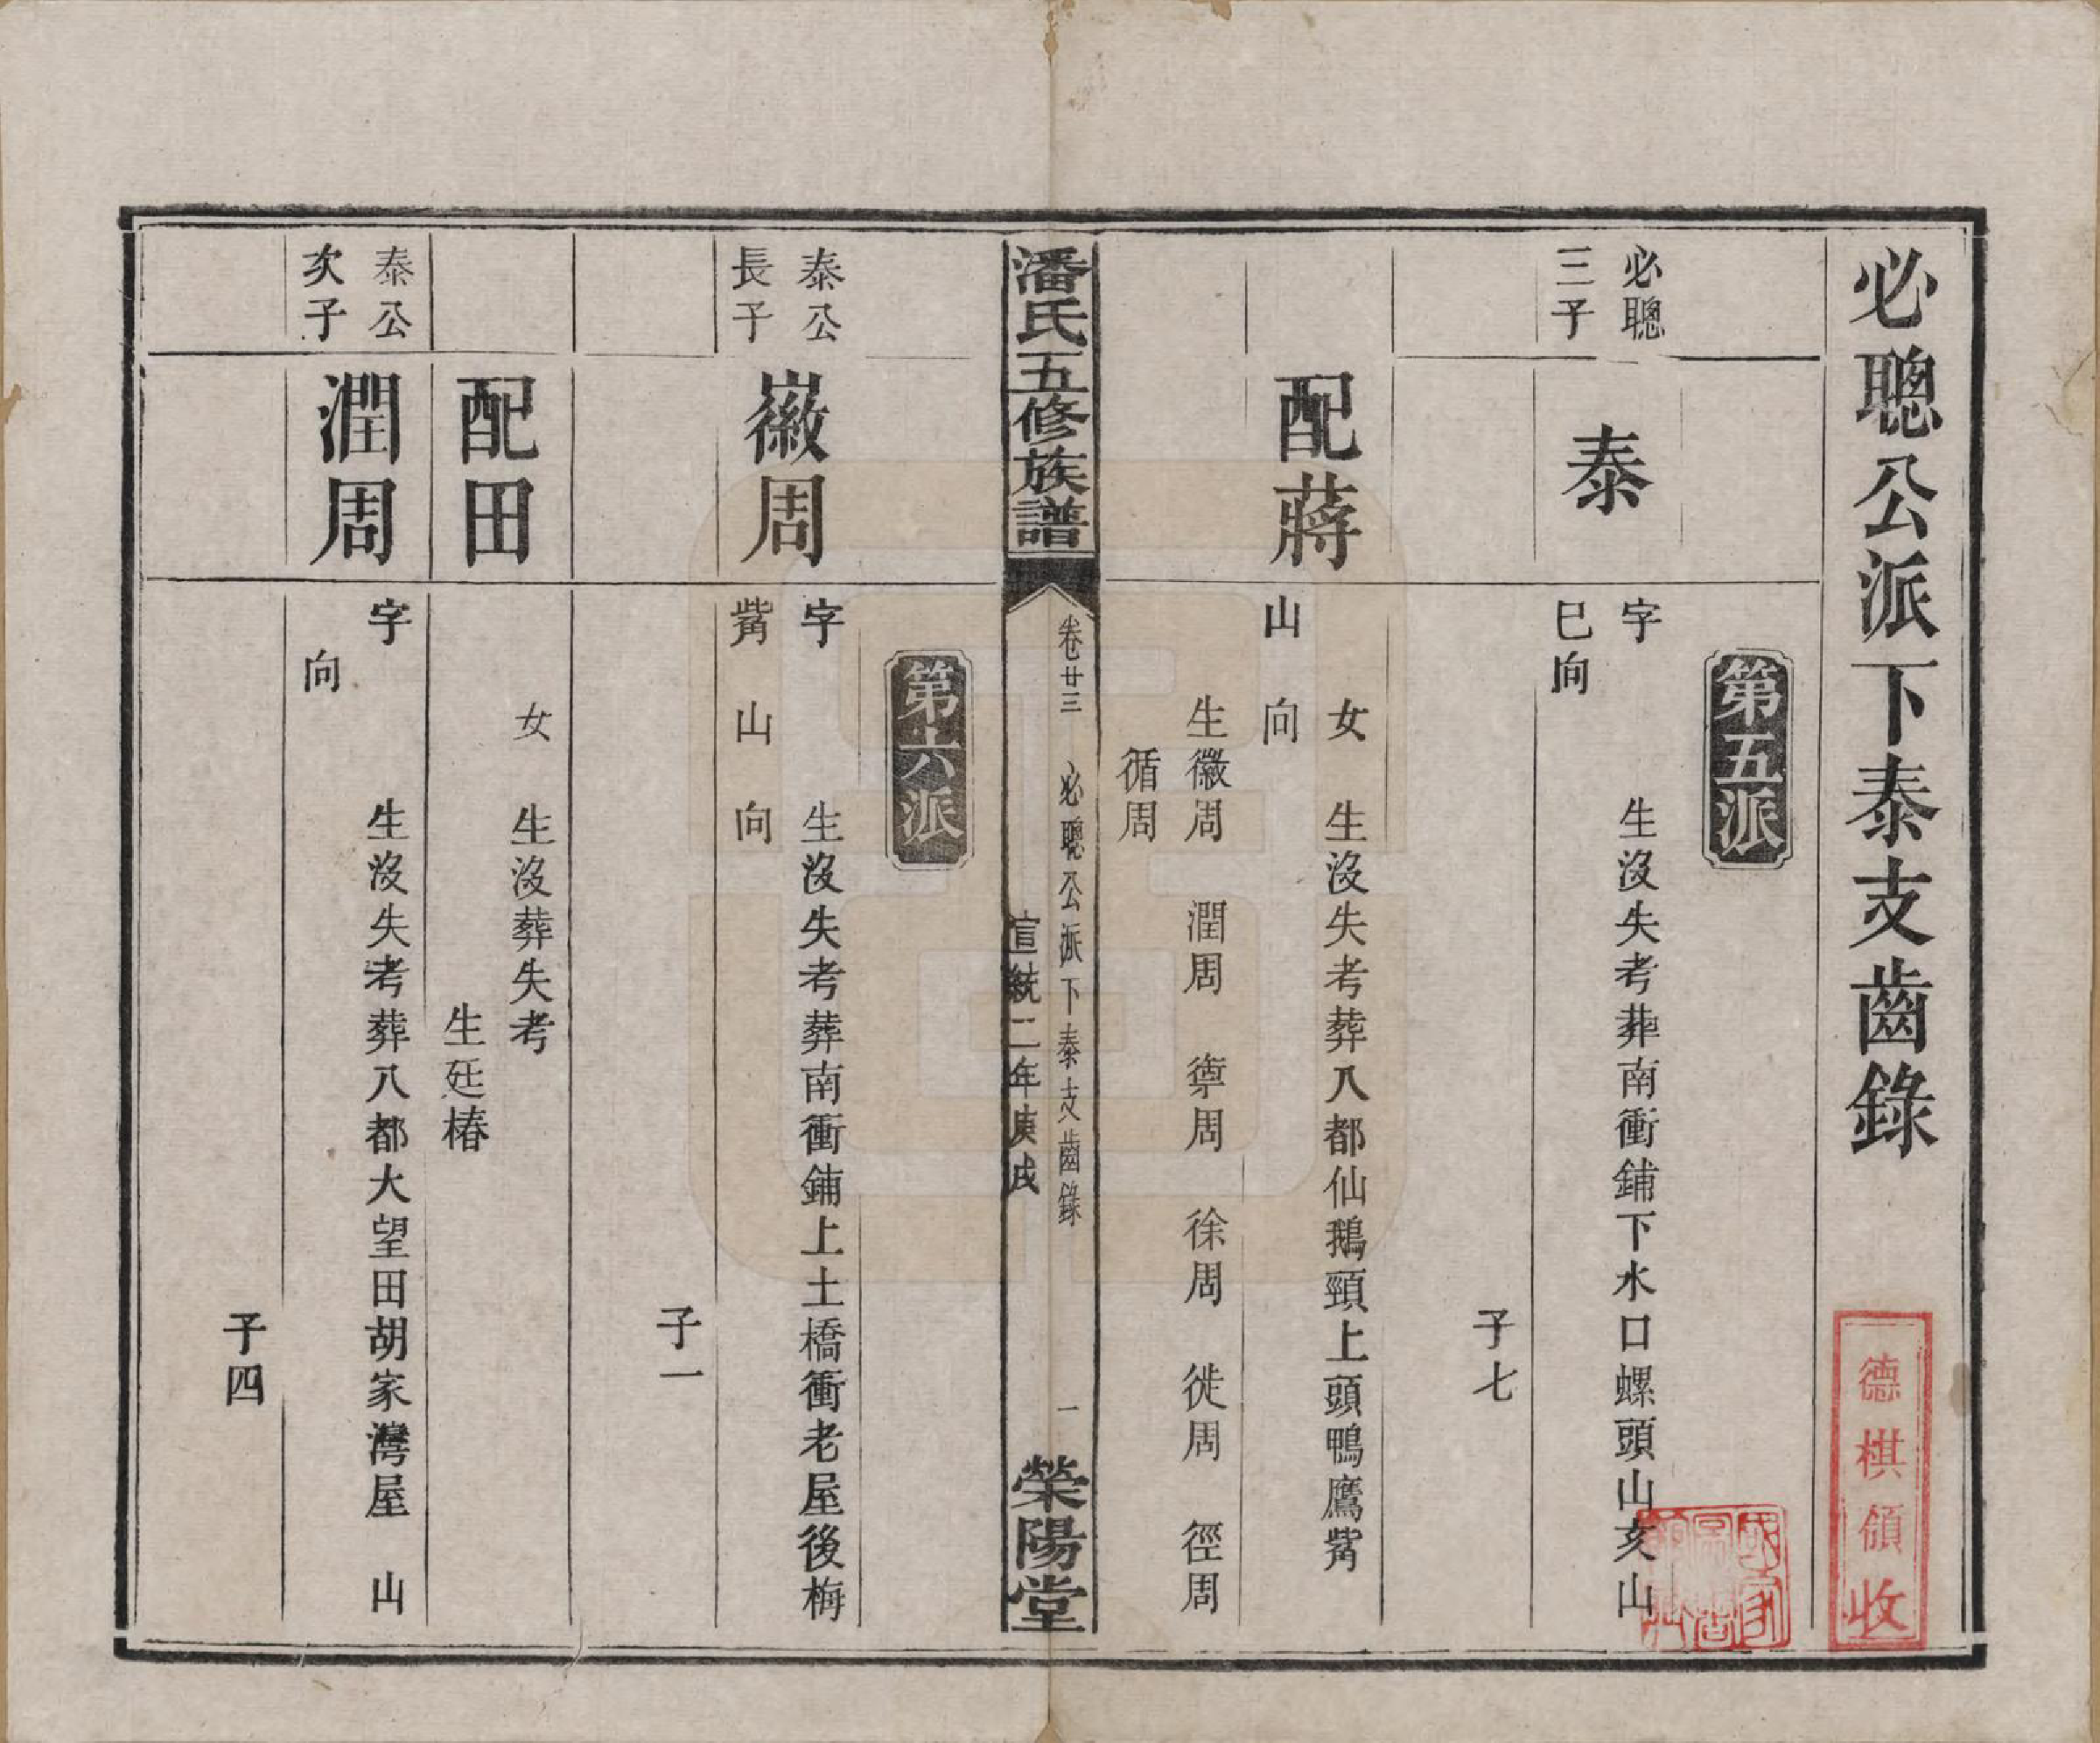 必聰公派下泰支齒錄
德棋領收
第五派
必聰
三子
泰
字　生沒失考葬南衝鋪下水口螺頭山亥山
巳向
子七
配蔣
女　生沒失考葬八都仙鵝頸上頭鴨鷹觜
山　向
生徽周　潤周　禦周　徐周　徙周　徑周
循周
潘氏五修族譜
卷廿三　必聰公派下泰支齒錄　一
宣統二年庚戌
榮陽堂
第六派
泰公
長子
徽周
字　生沒失考葬南衝鋪上土橋衝老屋後梅
觜　山　向
子一
配田
女　生沒葬失考
生廷椿
泰公
次子
潤周
字　生沒失考葬八都大望田胡家灣屋　山
向
子四